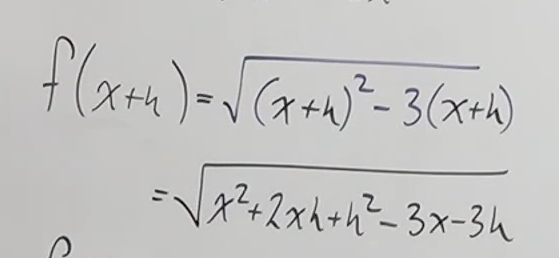 f(x+h)=√((x+h)²-3(x+h))
=√(x²+2xh+h²-3x-3h)